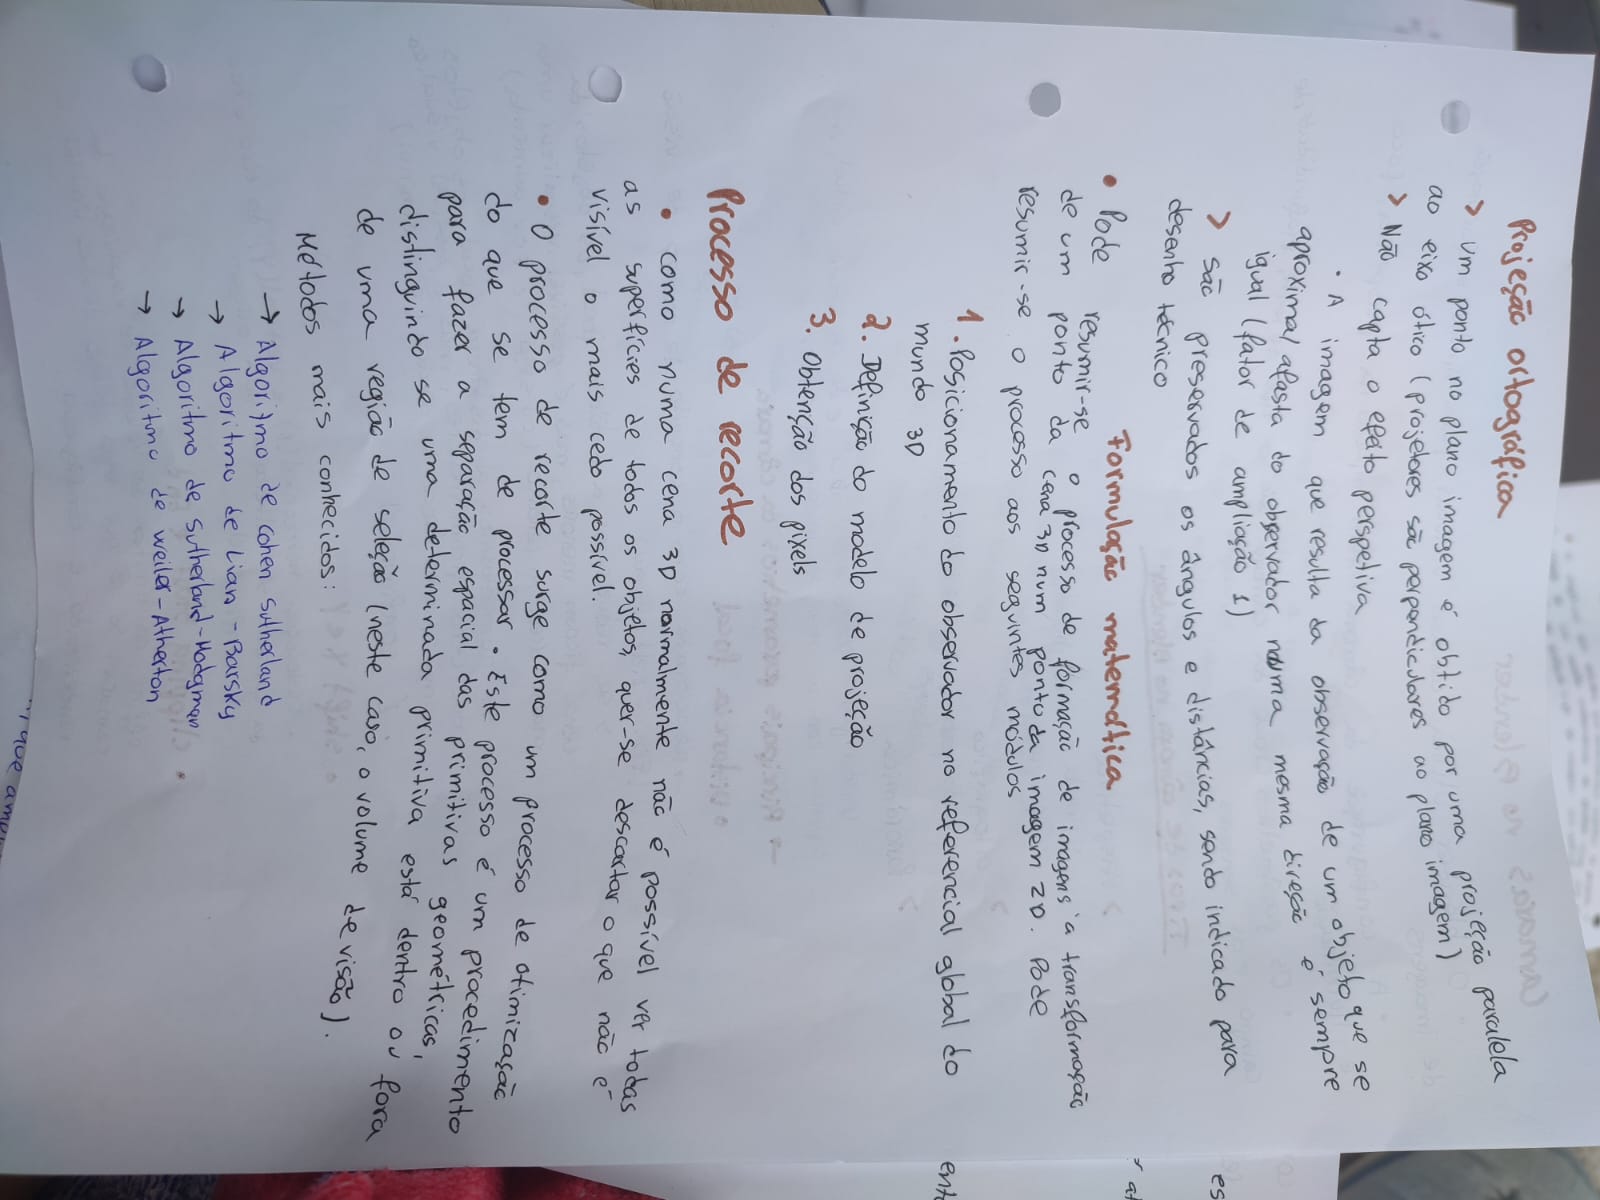 Projeção ortográfica
> Um ponto no plano imagem é obtido por uma projeção paralela
ao eixo ótico (projetores são perpendiculares ao plano imagem)
> Não capta o efeito perspetiva
· A imagem que resulta da observação de um objeto que se
aproxima/afasta do observador numa mesma direção é sempre
igual (fator de ampliação 1)
> São preservados os ângulos e distâncias, sendo indicado para
desenho técnico
Formulação matemática
• Pode resumir-se o processo de formação de imagens à transformação
de um ponto da cena 3D num ponto da imagem 2D. Pode
resumir-se o processo aos seguintes módulos
1. Posicionamento do observador no referencial global do
mundo 3D
2. Definição do modelo de projeção
3. Obtenção dos pixels
Processo de recorte
• Como numa cena 3D normalmente não é possível ver todas
as superfícies de todos os objetos, quer-se descartar o que não é
visível o mais cedo possível.
• O processo de recorte surge como um processo de otimização
do que se tem de processar. Este processo é um procedimento
para fazer a separação espacial das primitivas geométricas,
distinguindo se uma determinada primitiva está dentro ou fora
de uma região de seleção (neste caso, o volume de visão).
Métodos mais conhecidos:
→ Algoritmo de Cohen Sutherland
→ Algoritmo de Lian-Barsky
→ Algoritmo de Sutherland-Hodgman
→ Algoritmo de Weiler-Atherton
que